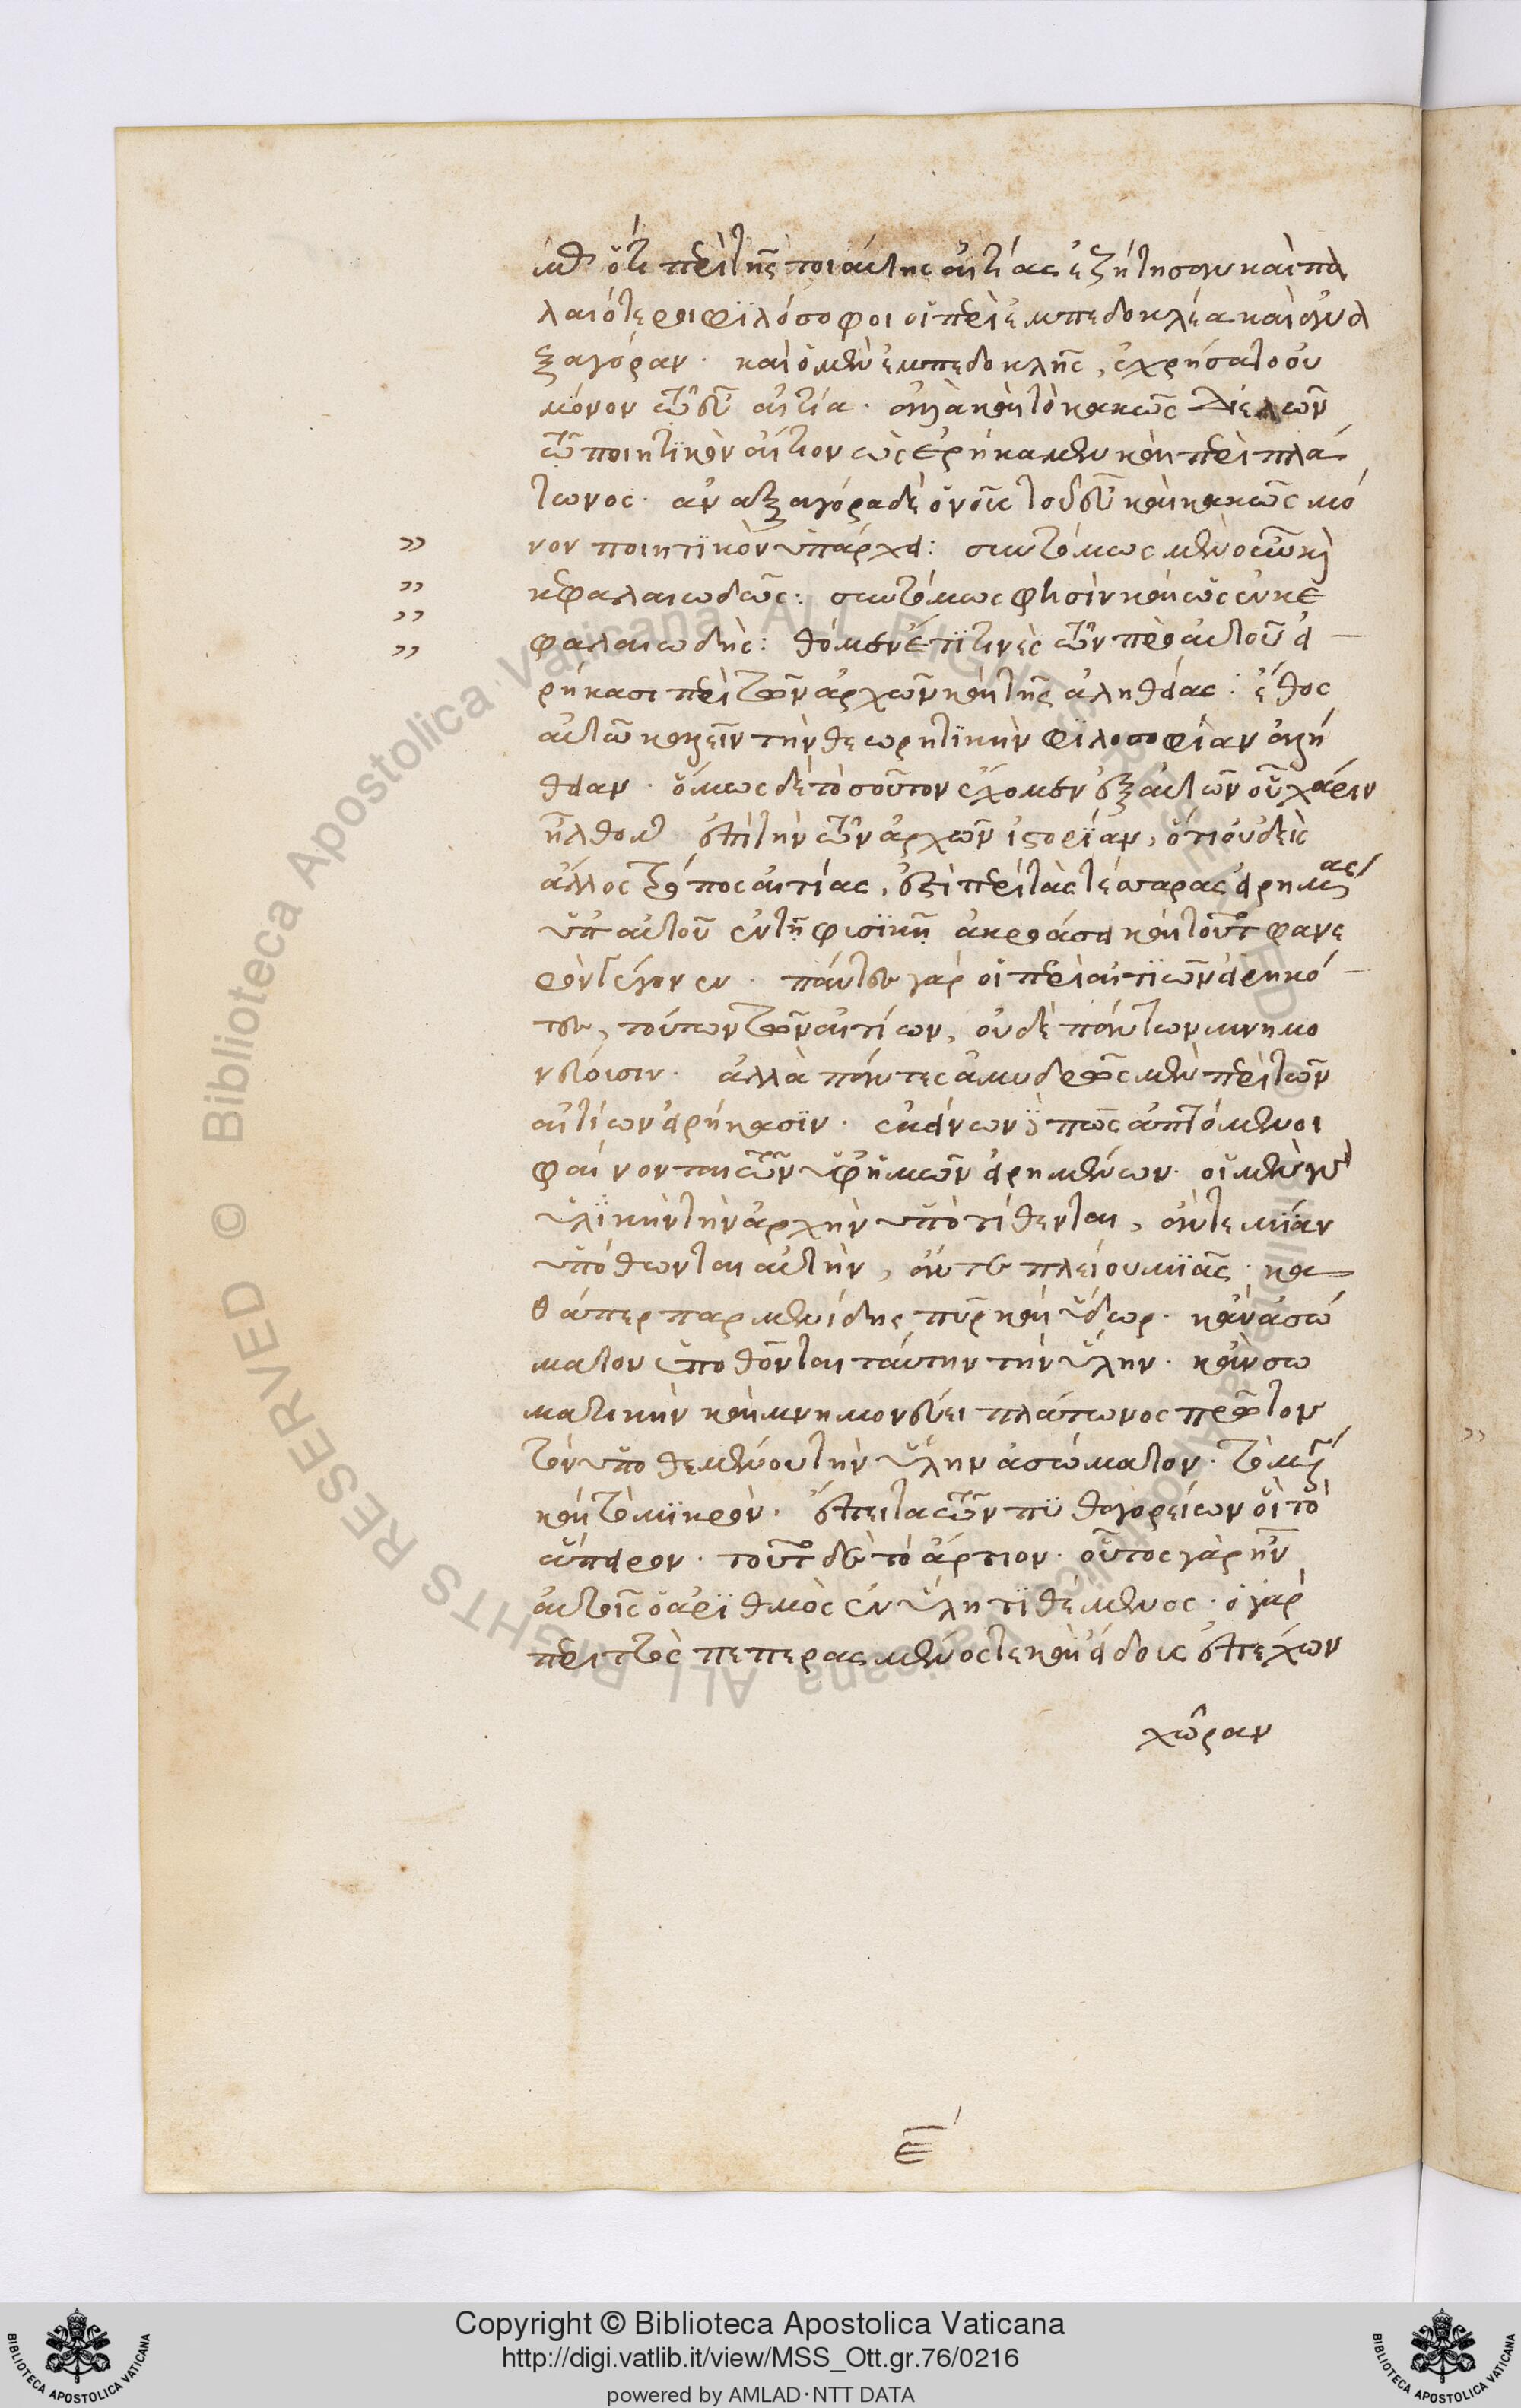 ὅτι περὶ τῆς τοιαύτης αἰτίας ἐζήτησαν καὶ πα
λαιότεροι φϊλόσοφοι οἱ περὶ ἐμπεδοκλέα καὶ ἀνα
ξαγόραν · καὶ ὁ μὲν ἐμπεδοκλῆς, ἐχρήσατο οὐ
μόνον τῶ εὖ αἰτία · ἀλλὰ καὶ τὸ κακῶς
τῶ ποιητϊκὸν αἴτιον ὡς εἰρήκαμεν καὶ περὶ πλά
τωνος · ἀναξαγόρα δὲ ὁ νοῦς τοῦ εὖ καὶ κακῶς μό
νον ποιητϊκὸν ὑπάρχει : συντόμως μὲν οὖν καὶ
κεφαλαιωδῶς : συντόμως φησὶν καὶ ὡς ἐν κε
φαλαιωδης : ἔτϊ τινὲς τῶν πρὸ αὐτοῦ εἰ
ρήκασι περὶ τῶν ἀρχῶν καὶ τῆς ἀληθείας : ἔθος
αὐτῶ καλεῖν τὴν θεωρητϊκὴν φϊλοσοφίαν ἀλή
θειαν · ὅμως δὲ τοσοῦτον ἔχομεν ἐξ αὐτῶν οὗ χάριν
ἤλθομεν ἐπὶ τὴν τῶν ἀρχῶν ἱστορϊαν, ὅτι οὐδεὶς
ἄλλος τρόπος αἰτίας, ἐστὶ περὶ τὰς τέσσαρας εἰρημένας
ὑπ αὐτοῦ ἐν τῆ φισϊκῆ ἀκροάσει καὶ τοῦτο φανε
ρὸν γέγονεν · πάντες γὰρ οἱ περὶ αἰτϊῶν εἰρηκό
τες, τούτων τῶν αἰτίων, οὐδὲ πάντων μνημο
νεύοισιν · ἀλλὰ πάντες ἀμυδρῶς μὲν περὶ τῶν
αἰτίων εἰρήκασϊν · ἐκείνων δέ πως ἁπτόμενοι
φαίνονται τῶν ὑφ ἡμῶν εἰρημένων · οἱ μὲν γὰρ
ὑλϊκὴν τὴν ἀρχὴν ὑποτίθενται, ἄν τε μϊὰν
ὑπόθωνται αὐτὴν, ἄν τε πλείου μϊᾶς · κα
θάπερ παρμενίδης πῦρ καὶ ὕδωρ · κἂν ἀσώ
ματον ὑποθῶνται ταύτην τὴν ὕλην · κἂν σω
ματικὴν καὶ μνημονεύει πλάτωνος πρῶτον
τὸν ὑποθεμένου τὴν ὕλην ἀσώματον · τὸ μέγα
καὶ τὸ μϊκρὸν · ἔπειτα τῶν πϋθαγορείων οἳ τὸ
ἄπειρον · τοῦτο δὲ τὸ ἄρτιον · οὗτος γὰρ ἦν
αὐτοῖς ὁ ἀρϊθμὸς ἐν ὕλη τϊθέμενος · ὁ γὰρ
περιττὸς πεπερασμένος τε καὶ εἴδους ἐπέχων
χώραν
ε
Copyright © Biblioteca Apostolica Vaticana
http://digi.vatlib.it/view/MSS_Ott.gr.76/0216
powered by AMLAD·NTT DATA